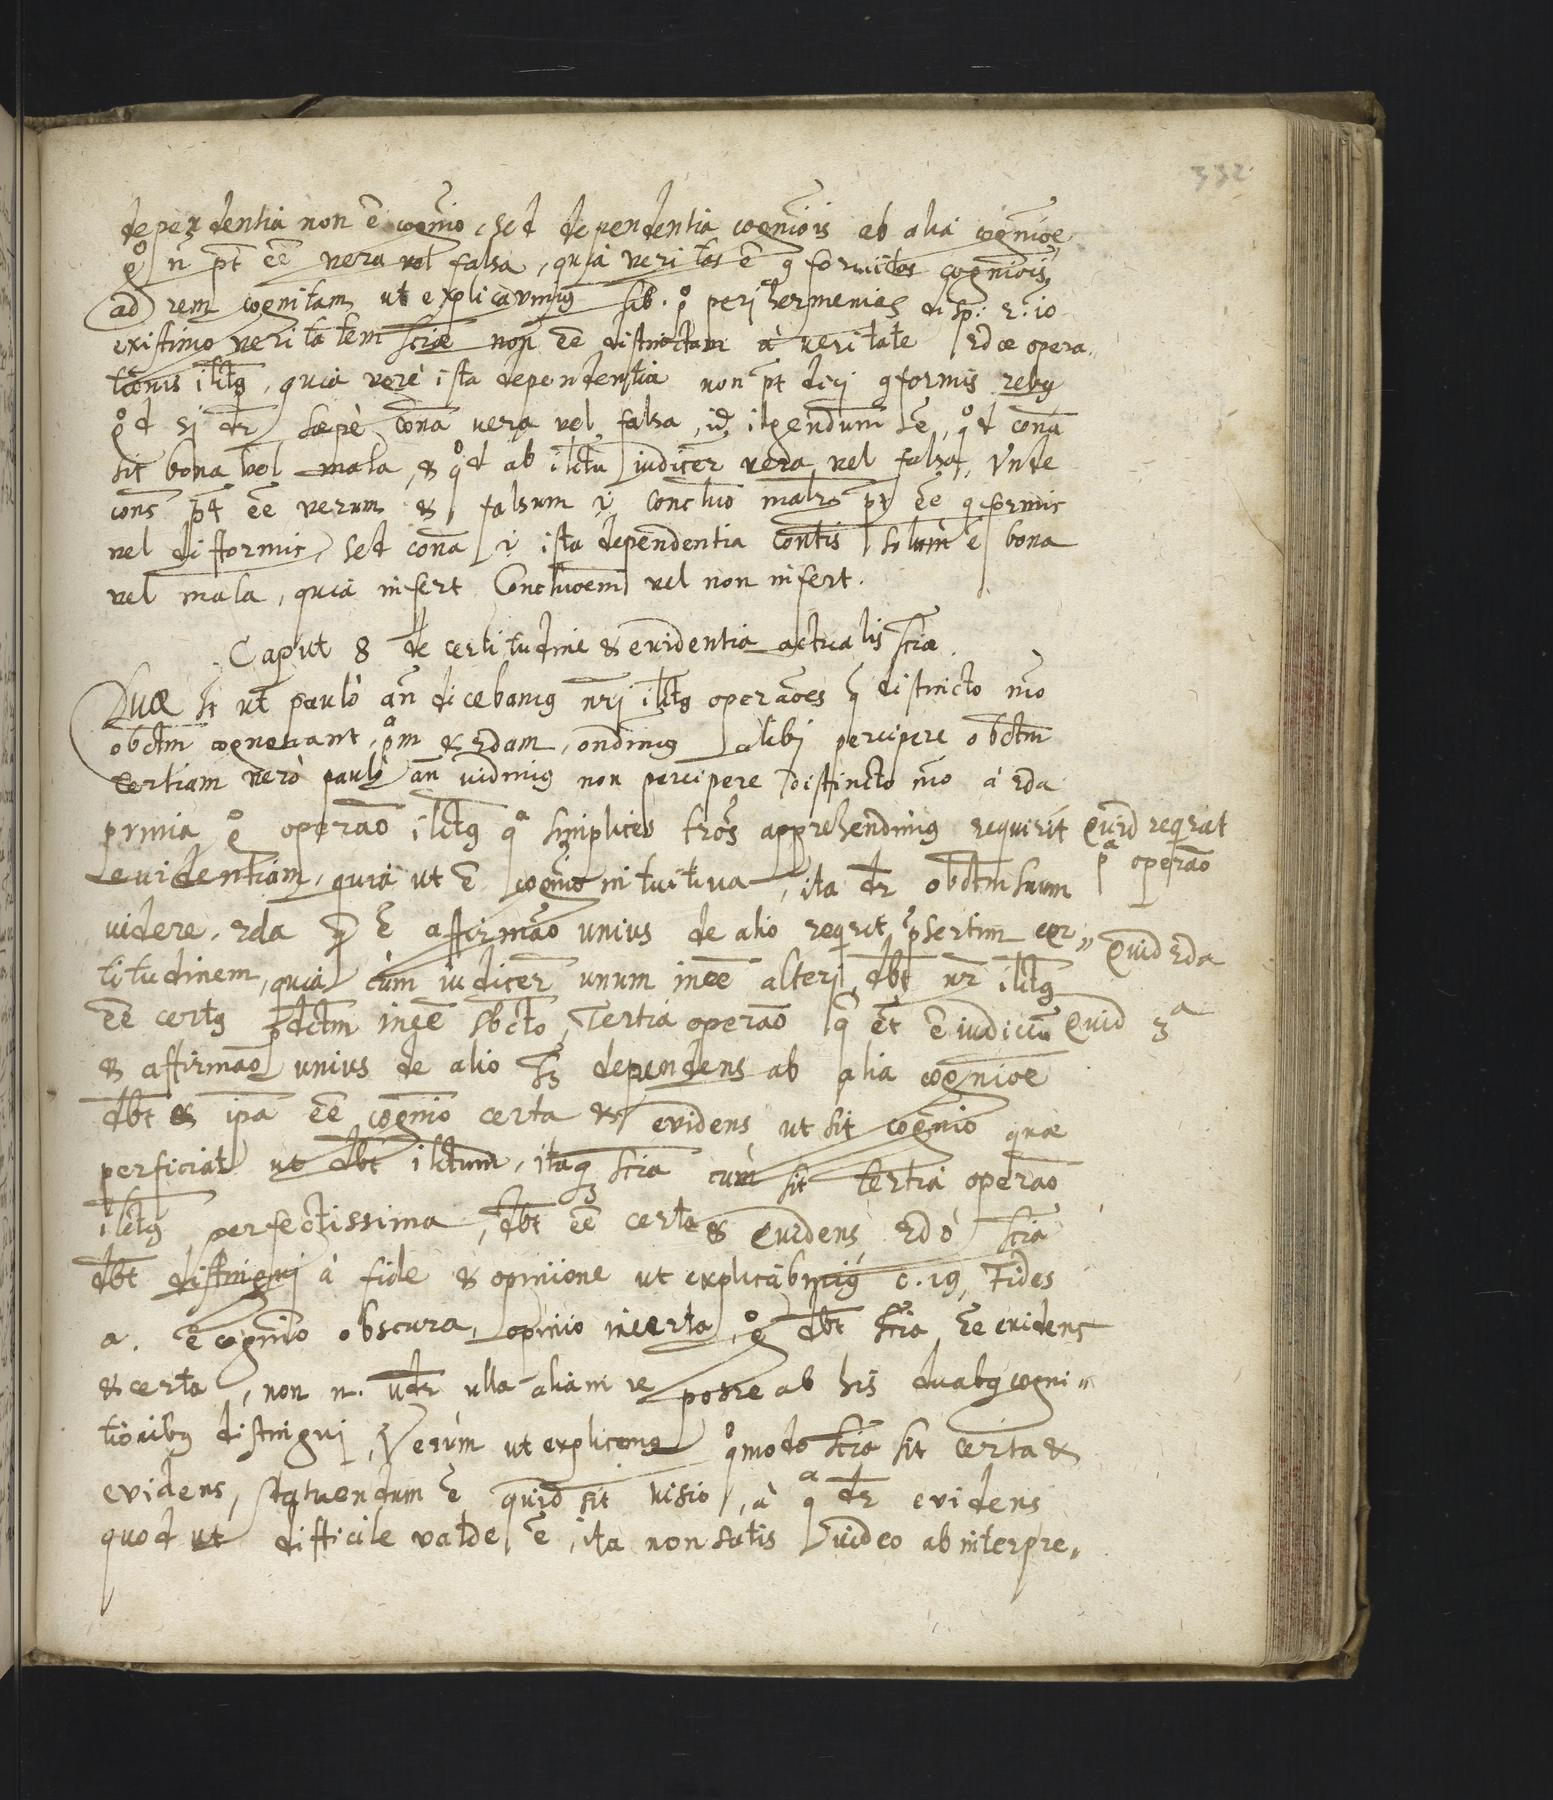 332
dependentia non ē cognīo, sed dependentia cognīois ab alia cognīoe
g° n̄ pt̄ ēē vera vel falsa, quia veritas ē 9formitas cognīois
ad rem cognitam ut explicavimus lib. p° perihermenias disp: 2. io
existimo veritatem sciæ non ēē distinctam à veritate 2dæ opera„
tionis ilt̄us, quia verè ista dependentia non pt̄ dici 9formis rebus
q°d si dr̄ sæpè conā vera vel falsa, id ilgendum ē, q°d conā
sit bona vel mala, & q°d ab ilt̄u iudicer̄ vera vel falsa, Unde
cons̄ pt̄ ēē verum & falsum i conclusio pt̄ ēē 9formis
vel difformis, sed conā i ista dependentia solum ē bona
vel mala, quia infert conclusioem vel non infert.
Caput 8 de certitudine & evidentia actualis sciæ.
Duæ st̄ ut paulò an̄ dicebamus nr̄i ilt̄us operāoes q̄ distincto mō
obctm̄ cognoscant, p°m & 2dam, ondimus alibi percipere obctm̄
tertiam verò paulò an̄ vidimus non percipere distincto mō à 2da
prima g° operāo ilt̄us qª simplices tr̄os apprehendimus requirit
evidentiam, quia ut ē cognīo intuitiva, ita dr̄ obctm̄ suum
videre, 2da q̄ ē affirmāo unius de alio reqrit p̄sertim cer„
titudinem, quia cum iudicer̄ unum inēē alteri dbt̄ nr̄ ilt̄us
ēē certus p̄dctm̄ inēē sbcto, Tertia operāo q̄ et̄ ē iudiciū
& affirmāo unius de alio s3 dependens ab alia cognīoe
dbt̄ & ipā ēē cognīo certa & evidens ut sit cognīo quæ
perficiat ut dbt̄ ilt̄um, itaq3 scia cum sit tertia operāo
ilt̄us perfectissima, dbt̄ ēē certa & evidens 2dò scia
dbt̄ distingui à fide & opinione ut explicabimus c. 19, Fides
a. ē cognīo obscura, opinio incerta, g° dbt̄ scia ēē evidens
& certa, non n. vdr̄ ulla alia in re posse ab his duabus cogni„
tionibus distingui, Verùm ut explicemus q°modo scia sit certa &
evidens, statuendum ē quid sit visio, à qª dr̄ evidens
quod ut difficile valde ē, ita non satis video ab interpre„
Quid reqrat
pª operāo
Quid 2da
Quid 3ª